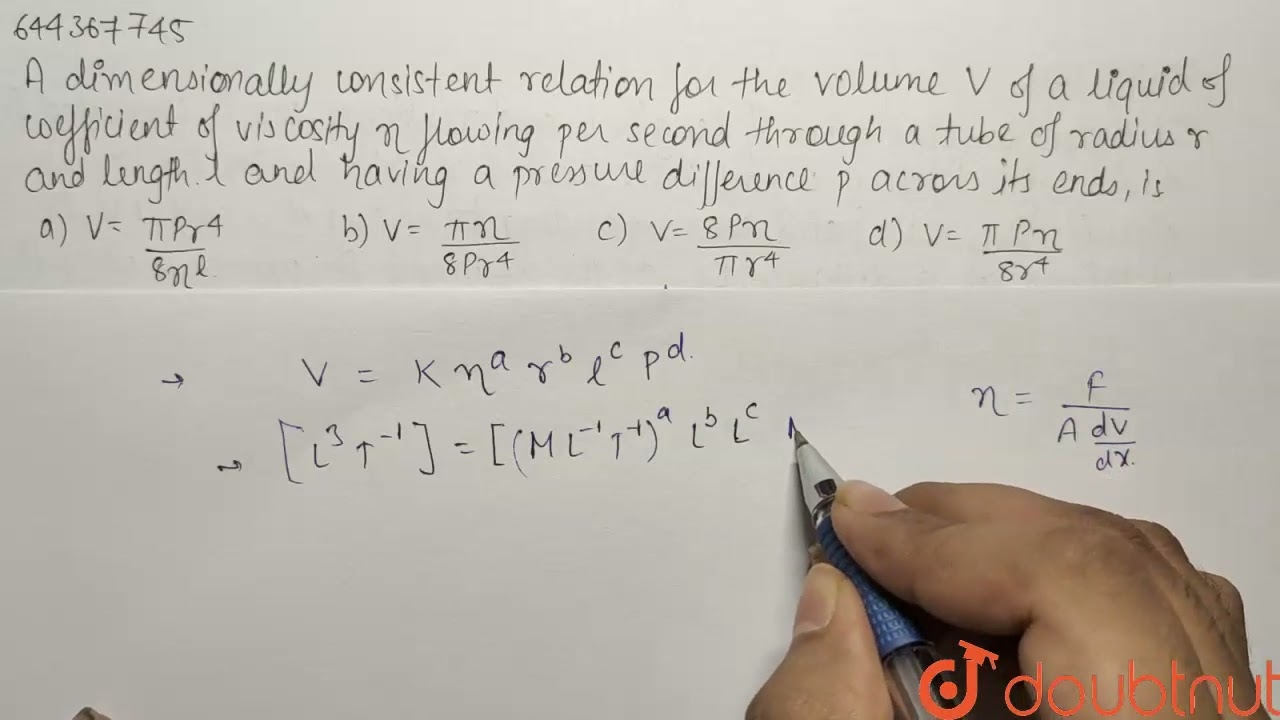 644367745
A dimensionally consistent relation for the volume V of a liquid of
coefficient of viscosity η flowing per second through a tube of radius r
and length. l and having a pressure difference p across its ends, is
a) V= πPr4/8ηl b) V= πη/8Pr4 c) V= 8Pη/πr4 d) V= πPη/8r4
→ V = K η^a r^b l^c p^d.
η = F/(A dv/dx.)
→ [L^3 T^-1] = [(M L^-1 T^-1)^a L^b L^c
doubtnut